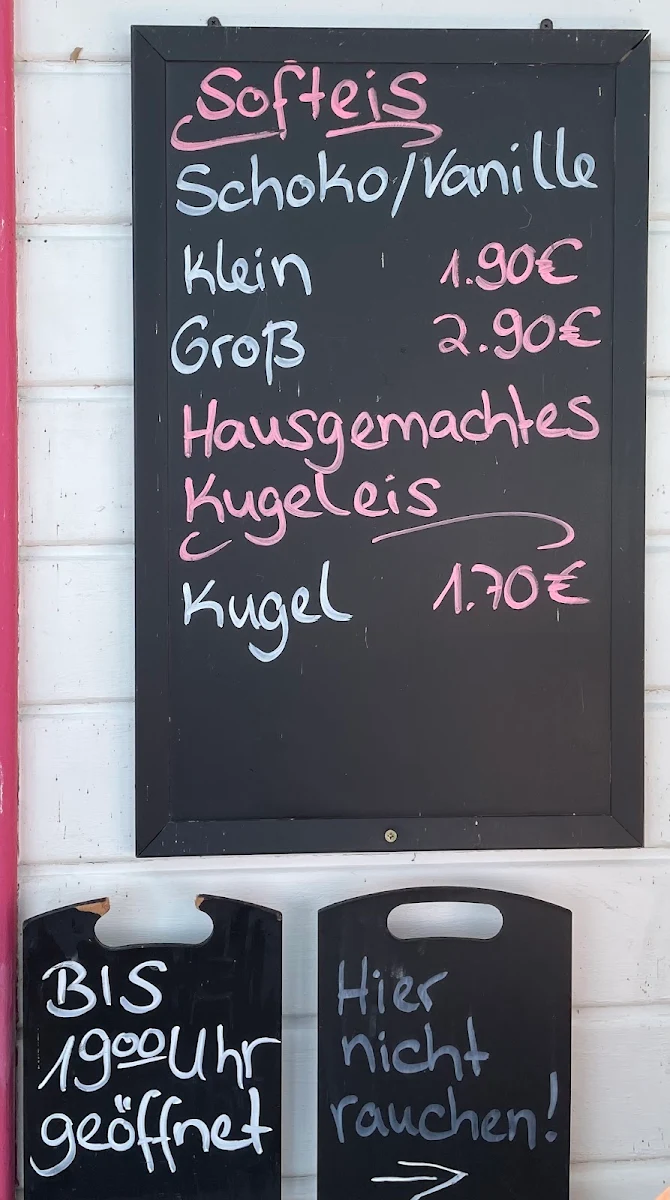 Softeis
Schoko/Vanille
Klein 1.90€
Groß 2.90€
Hausgemachtes
Kugeleis
Kugel 1.70€
BIS
19⁰⁰ Uhr
geöffnet
Hier
nicht
rauchen!